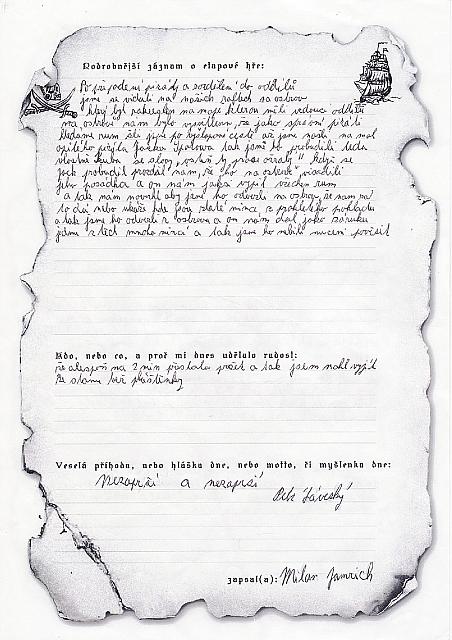 Podrobnější záznam o etapové hře:
Po přepadení piráty a rozdělení do oddílů
jsme se vydali na našich raftech na ostrov
který byl nakreslen na mapě kterou měli vedoucí oddílů
na ostrově nám bylo vysvětleno, že jako správní piráti
hledáme rum, šli jsme po vyšlapaní cestě až jsme narazili na mal
opilého pirjáta Jacka Sparowa tak jsme ho probudili teda
vlastně kuba se slovy „vstávej ty prase ožralý“ když se
jack probudil prozradil nám, že ho na ostrově vysadili
jeho posádka a on nám jaksi vypil všechen rum
a tak nám navrhl aby jsme ho odvezli na ostrov, že nám za
to dá nebo ukáže kde jsou zlaté mince z prokletého pokladu
a tak jsme ho odvezli z ostrova a on nám dal jako záruku
jednu z těch mnoha mincí a tak jsme ho nebyli nuceni pověsit
Kdo, nebo co, a proč mi dnes udělalo radost:
že alespoň na 2 min přestalo pršet a tak jsem mohl vyjít
ze stanu bez pláštěnky
Veselá příhoda, nebo hláška dne, nebo motto, či myšlenka dne:
Nezaprší a nezaprší
Petr
zapsal(a): Milan Jamrich